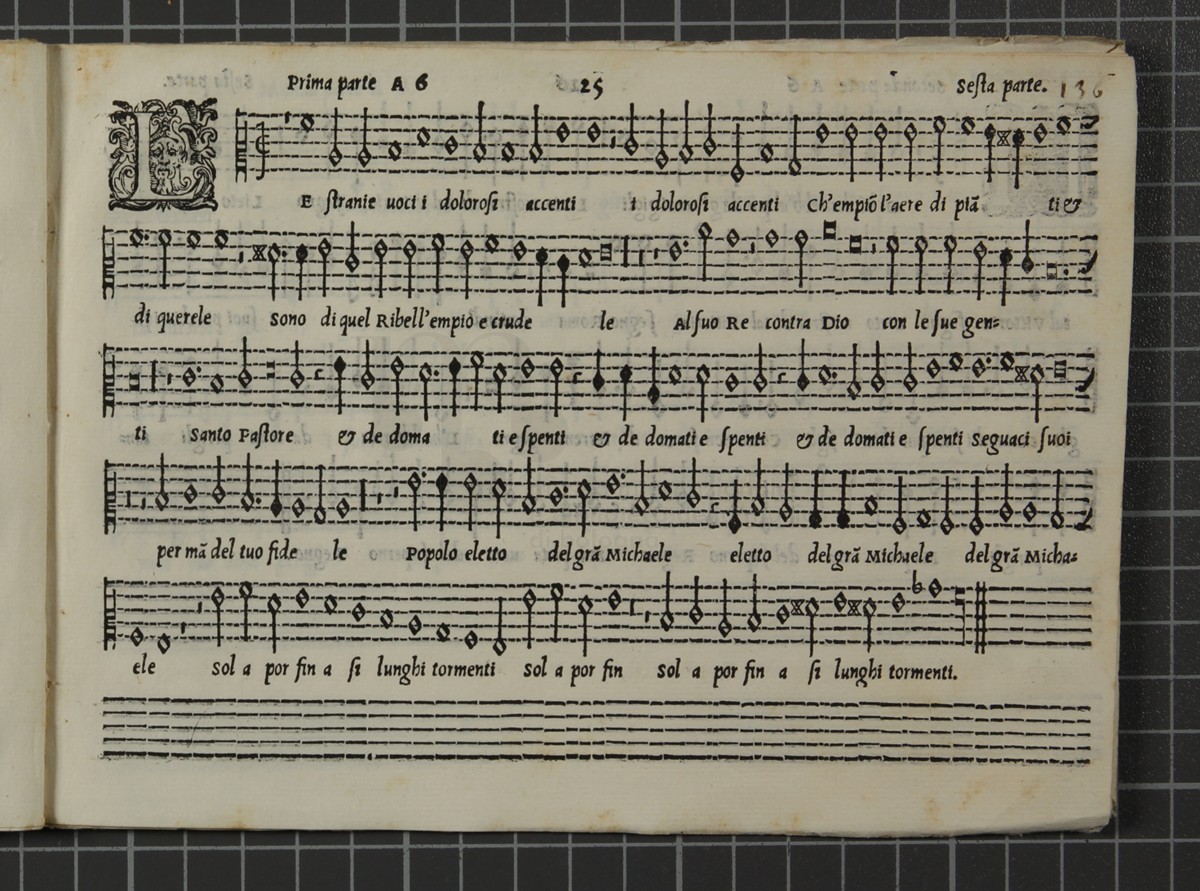 Prima parte A 6 25 Sesta parte. 136
LE stranie uoci i dolorosi accenti i dolorosi accenti Ch'empiō l'aere di piā ti &
di querele sono di quel Ribell'empio e crude le Al suo Re contra Dio con le sue gen=
ti Santo Pastore & de doma ti e spenti & de domati e spenti & de domati e spenti Seguaci suoi
per mā del tuo fide le Popolo eletto del grā Michaele eletto del grā Michaele del grā Micha=
ele sol a por fin a si lunghi tormenti sol a por fin sol a por fin a si lunghi tormenti.